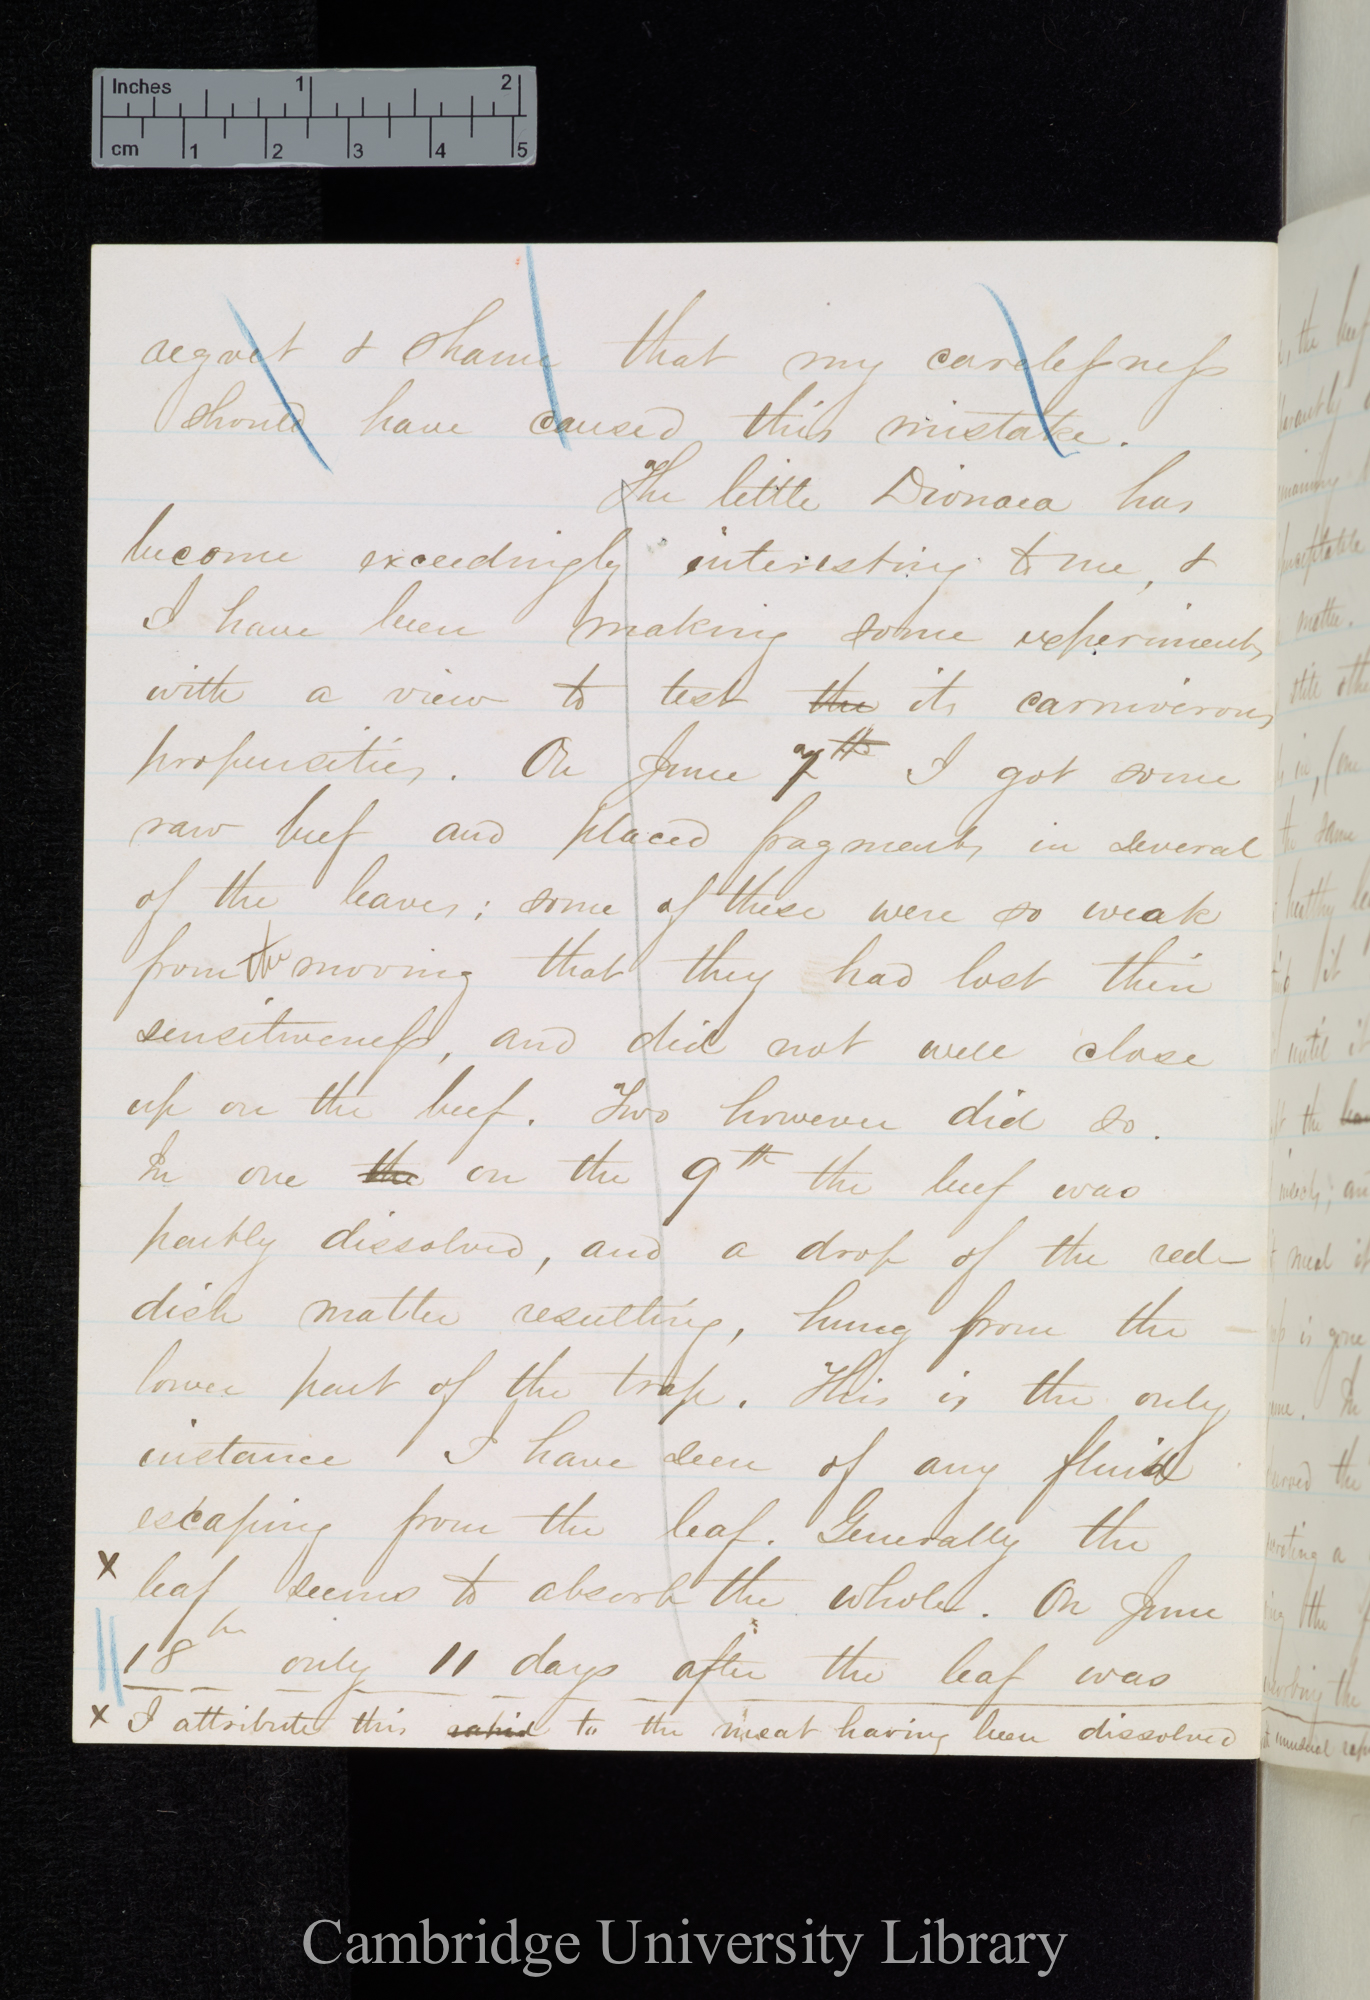 Inches 1 2
cm 1 2 3 4 5
regret & shame that my carelessness
should have caused this mistake.
The little Dionaea has
become exceedingly interesting to me, &
I have been making some experiments
with a view to test the its carnivorous
propensities. On June 7th I got some
raw beef and placed fragments in several
of the leaves; some of these were so weak
from the moving that they had lost their
sensitiveness, and did not well close
up on the beef. Two however did so.
In one the on the 9th the beef was
partly dissolved, and a drop of the red-
dish matter resulting, hung from the
lower part of the trap. This is the only
instance I have seen of any fluid
escaping from the leaf. Generally the
x leaf seems to absorb the whole. On June
18th only 11 days after the leaf was
x I attribute this rapid to the meat having been dissolved
the
matter.
in, (one
the same
healthy
it
until it
the
insects; an
meal
is gone
In
the
a
the
the
unusual
Cambridge University Library